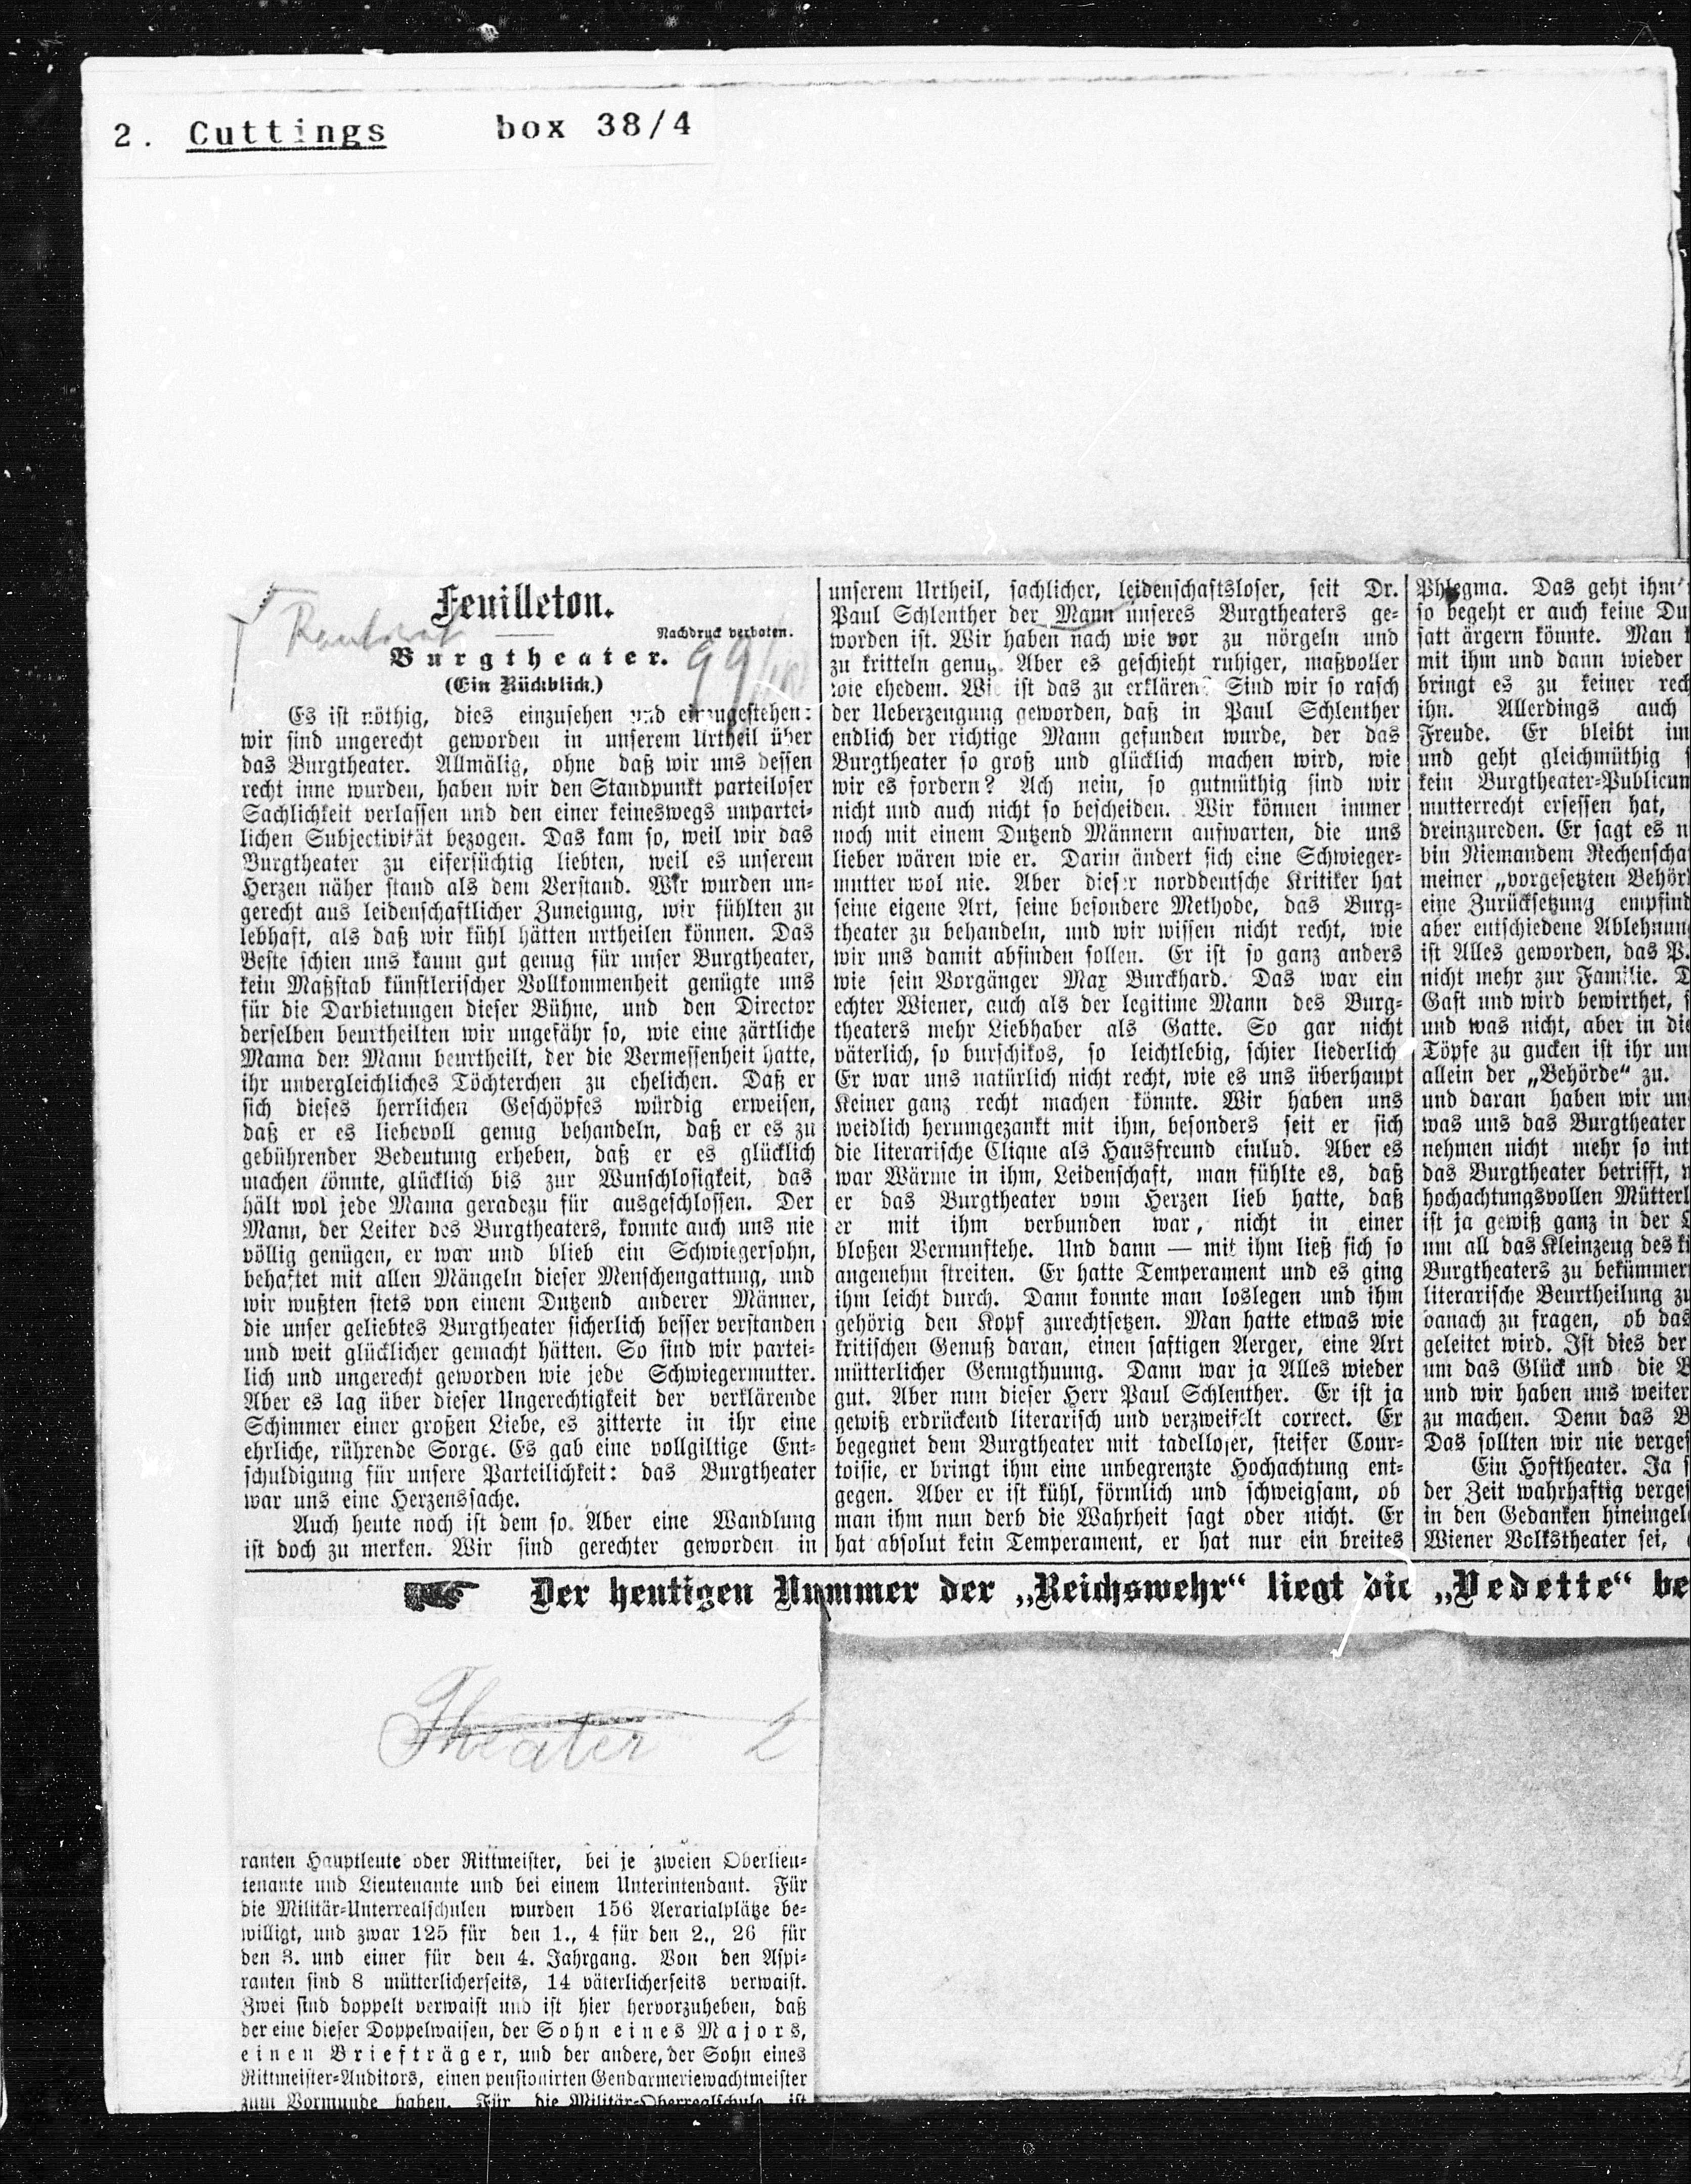 2. Cuttings box 38/4
Feuilleton.
Nachdruck verboten.
Burgtheater.
99
(Ein Rückblick.)
Es ist nöthig, dies einzusehen und einzugestehen:
wir sind ungerecht geworden in unserem Urtheil über
das Burgtheater. Allmälig, ohne daß wir uns dessen
recht inne wurden, haben wir den Standpunkt parteiloser
Sachlichkeit verlassen und den einer keineswegs unpartei-
lichen Subjectivität bezogen. Das kam so, weil wir das
Burgtheater zu eifersüchtig liebten, weil es unserem
Herzen näher stand als dem Verstand. Wir wurden un-
gerecht aus leidenschaftlicher Zuneigung, wir fühlten zu
lebhaft, als daß wir kühl hätten urtheilen können. Das
Beste schien uns kaum gut genug für unser Burgtheater,
kein Maßstab künstlerischer Vollkommenheit genügte uns
für die Darbietungen dieser Bühne, und den Director
derselben beurtheilten wir ungefähr so, wie eine zärtliche
Mama den Mann beurtheilt, der die Vermessenheit hatte,
ihr unvergleichliches Töchterchen zu ehelichen. Daß er
sich dieses herrlichen Geschöpfes würdig erweisen,
daß er es liebevoll genug behandeln, daß er es zu
gebührender Bedeutung erheben, daß er es glücklich
machen könnte, glücklich bis zur Wunschlosigkeit, das
hält wol jede Mama geradezu für ausgeschlossen. Der
Mann, der Leiter des Burgtheaters, konnte auch uns nie
völlig genügen, er war und blieb ein Schwiegersohn,
behaftet mit allen Mängeln dieser Menschengattung, und
wir wußten stets von einem Dutzend anderer Männer,
die unser geliebtes Burgtheater sicherlich besser verstanden
und weit glücklicher gemacht hätten. So sind wir partei-
lich und ungerecht geworden wie jede Schwiegermutter.
Aber es lag über dieser Ungerechtigkeit der verklärende
Schimmer einer großen Liebe, es zitterte in ihr eine
ehrliche, rührende Sorge. Es gab eine vollgiltige Ent-
schuldigung für unsere Parteilichkeit: das Burgtheater
war uns eine Herzenssache.
Auch heute noch ist dem so. Aber eine Wandlung
ist doch zu merken. Wir sind gerechter geworden in
unserem Urtheil, sachlicher, leidenschaftsloser, seit Dr.
Paul Schlenther der Mann unseres Burgtheaters ge-
worden ist. Wir haben nach wie vor zu nörgeln und
zu kritteln genug. Aber es geschieht ruhiger, maßvoller
wie ehedem. Wie ist das zu erklären? Sind wir so rasch
der Ueberzeugung geworden, daß in Paul Schlenther
endlich der richtige Mann gefunden wurde, der das
Burgtheater so groß und glücklich machen wird, wie
wir es fordern? Ach nein, so gutmüthig sind wir
nicht und auch nicht so bescheiden. Wir können immer
noch mit einem Dutzend Männern aufwarten, die uns
lieber wären wie er. Darin ändert sich eine Schwieger-
mutter wol nie. Aber dieser norddeutsche Kritiker hat
seine eigene Art, seine besondere Methode, das Burg-
theater zu behandeln, und wir wissen nicht recht, wie
wir uns damit abfinden sollen. Er ist so ganz anders
wie sein Vorgänger Max Burckhard. Das war ein
echter Wiener, auch als der legitime Mann des Burg-
theaters mehr Liebhaber als Gatte. So gar nicht
väterlich, so burschikos, so leichtlebig, schier liederlich
Er war uns natürlich nicht recht, wie es uns überhaupt
Keiner ganz recht machen könnte. Wir haben uns
weidlich herumgezankt mit ihm, besonders seit er sich
die literarische Clique als Hausfreund einlud. Aber es
war Wärme in ihm, Leidenschaft, man fühlte es, daß
er das Burgtheater vom Herzen lieb hatte, daß
er mit ihm verbunden war, nicht in einer
bloßen Vernunftehe. Und dann — mit ihm ließ sich so
angenehm streiten. Er hatte Temperament und es ging
ihm leicht durch. Dann konnte man loslegen und ihm
gehörig den Kopf zurechtsetzen. Man hatte etwas wie
kritischen Genuß daran, einen saftigen Aerger, eine Art
mütterlicher Genugthuung. Dann war ja Alles wieder
gut. Aber nun dieser Herr Paul Schlenther. Er ist ja
gewiß erdrückend literarisch und verzweifelt correct. Er
begegnet dem Burgtheater mit tadelloser, steifer Cour-
toisie, er bringt ihm eine unbegrenzte Hochachtung ent-
gegen. Aber er ist kühl, förmlich und schweigsam, ob
man ihm nun derb die Wahrheit sagt oder nicht. Er
hat absolut kein Temperament, er hat nur ein breites
Phlegma. Das geht ihm
so begeht er auch keine Du
satt ärgern könnte. Man
mit ihm und dann wieder
bringt es zu keiner rech
ihn. Allerdings auch
Freude. Er bleibt im
und geht gleichmüthig s
kein Burgtheater-Publicum
mutterrecht ersessen hat,
dreinzureden. Er sagt es n
bin Niemandem Rechenschaf
meiner „vorgesetzten Behör
eine Zurücksetzung empfind
aber entschiedene Ablehnun
ist Alles geworden, das P.
nicht mehr zur Familie. D
Gast und wird bewirthet, s
und was nicht, aber in die
Töpfe zu gucken ist ihr un
allein der „Behörde“ zu.
und daran haben wir un
was uns das Burgtheater
nehmen nicht mehr so int
das Burgtheater betrifft,
hochachtungsvollen Mütterl
ist ja gewiß ganz in der
um all das Kleinzeug des
Burgtheaters zu bekümmer
literarische Beurtheilung zu
danach zu fragen, ob das
geleitet wird. Ist dies der
um das Glück und die
und wir haben uns weiter
zu machen. Denn das B
Das sollten wir nie verges
Ein Hoftheater. Ja s
der Zeit wahrhaftig verges
in den Gedanken hineingel
Wiener Volkstheater sei,
Der heutigen Nummer der „Reichswehr“ liegt die „Vedette“ be
Theater 2
ranten Hauptleute oder Rittmeister, bei je zweien Oberlieu-
tenante und Lieutenante und bei einem Unterintendant. Für
die Militär-Unterrealschulen wurden 156 Aerarialplätze be-
willigt, und zwar 125 für den 1., 4 für den 2., 26 für
den 3. und einer für den 4. Jahrgang. Von den Aspi-
ranten sind 8 mütterlicherseits, 14 väterlicherseits verwaist.
Zwei sind doppelt verwaist und ist hier hervorzuheben, daß
der eine dieser Doppelwaisen, der Sohn eines Majors,
einen Briefträger, und der andere, der Sohn eines
Rittmeister-Auditors, einen pensionirten Gendarmeriewachtmeister
zum Vormunde haben. Für die Militär-Oberrealschule ist